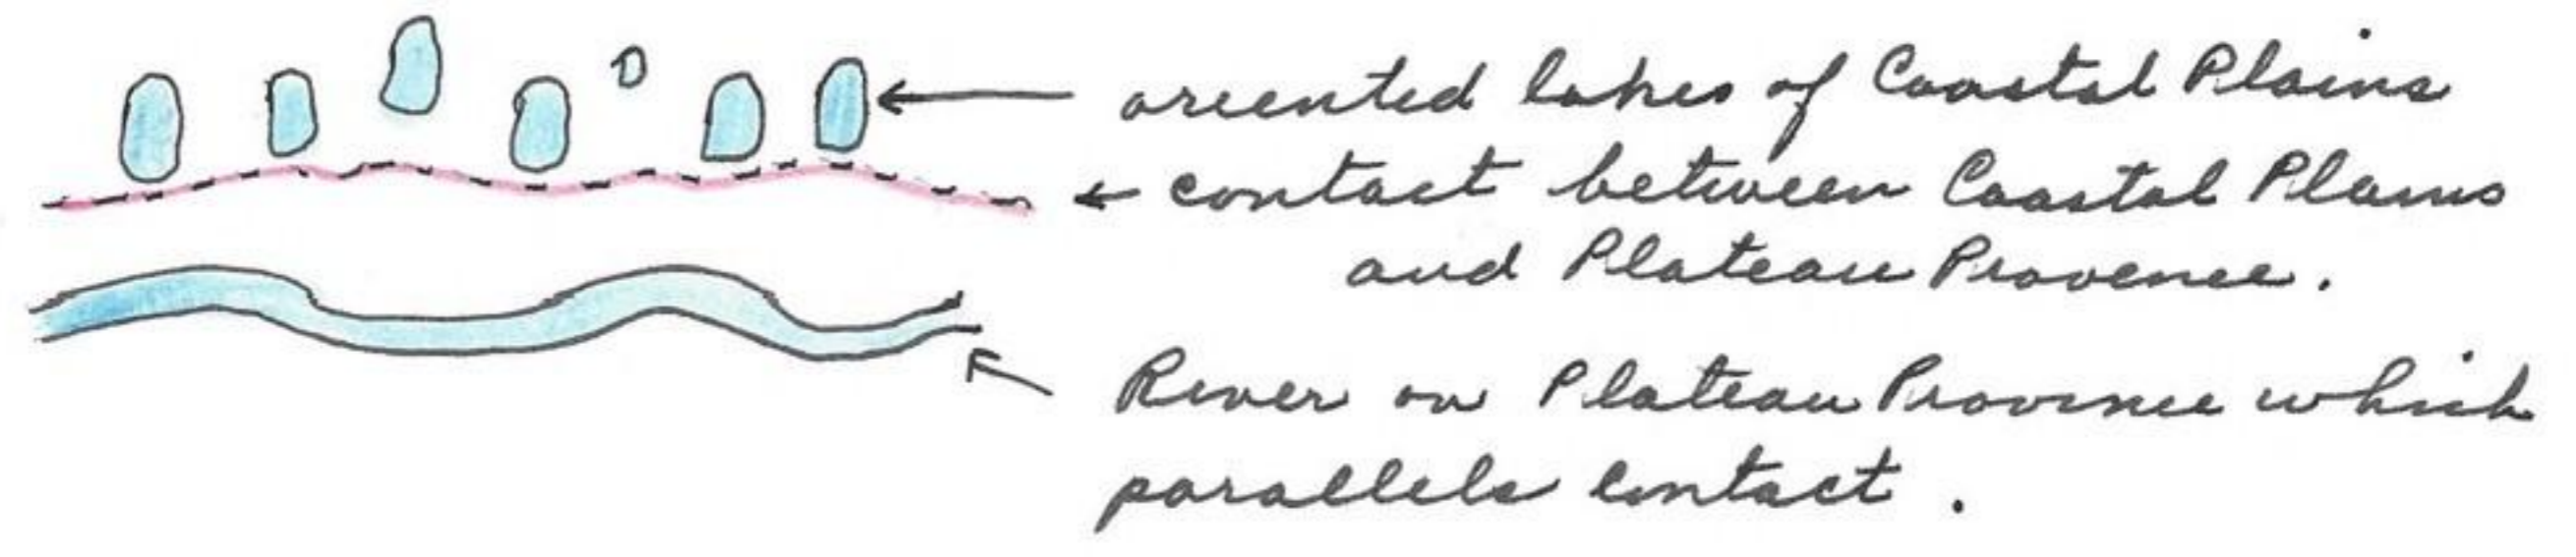 oriented lakes of Coastal Plains
contact between Coastal Plains
and Plateau Provence.
River on Plateau Province which
parallels contact.